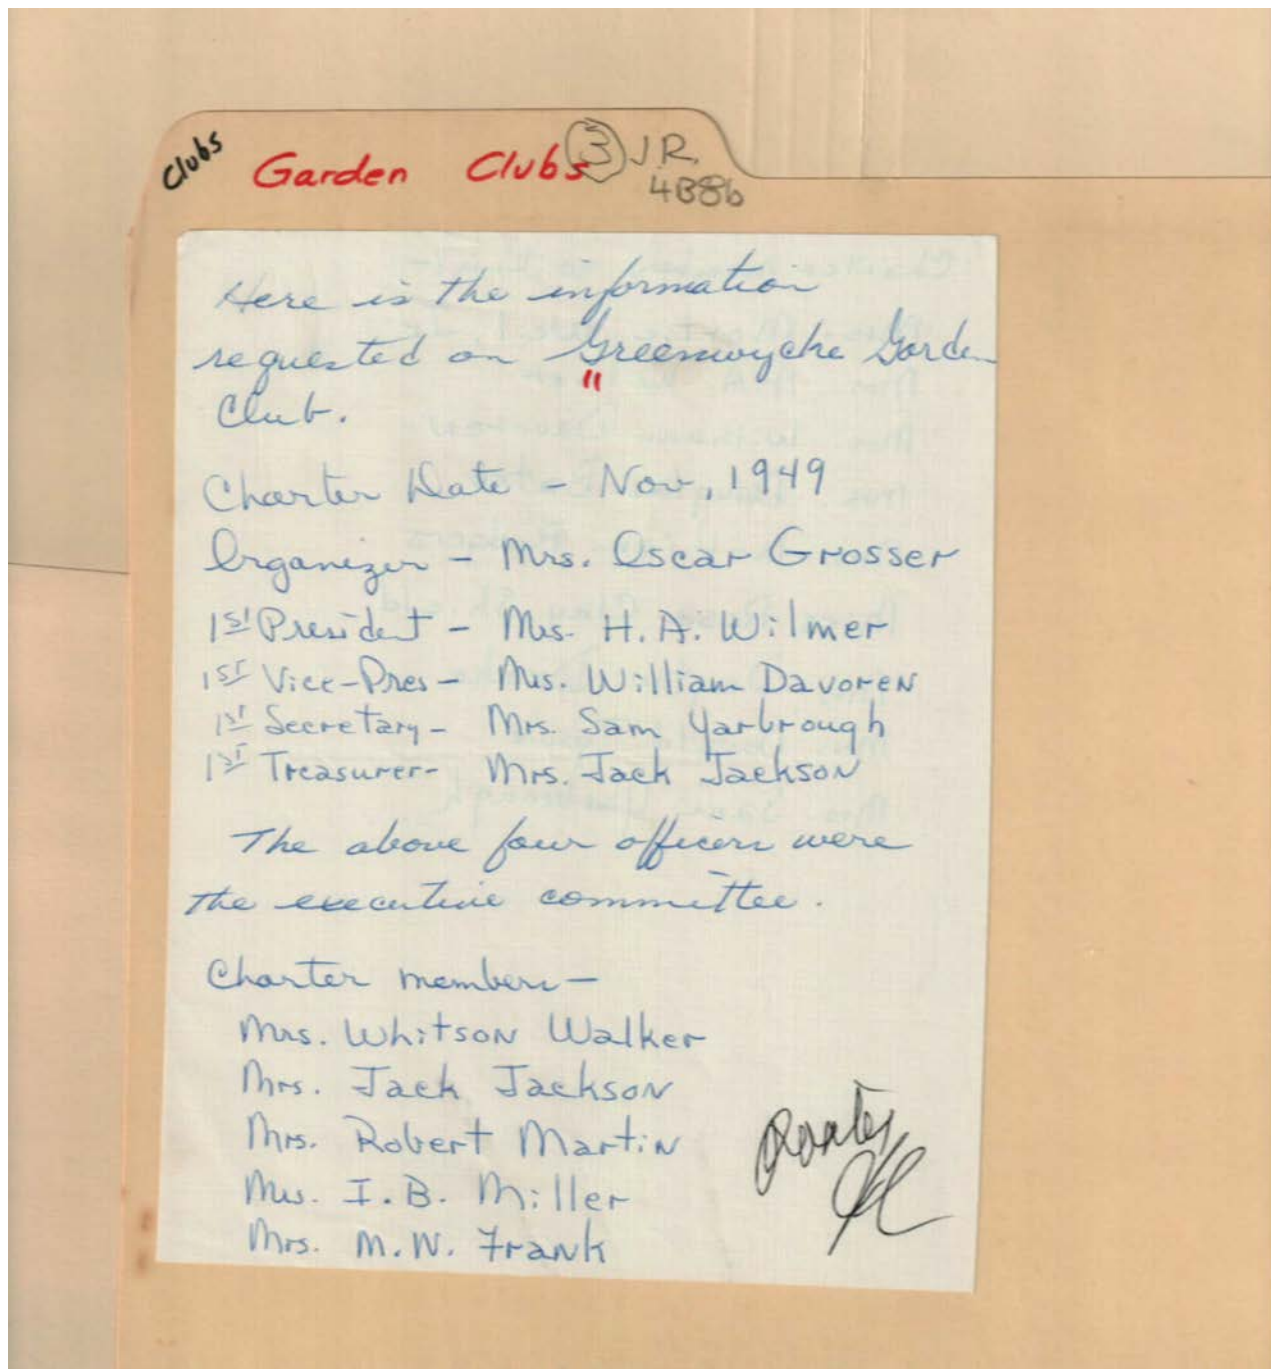 Clubs
Garden Clubs 3 J.R.
4B8b
Here is the information
requested on Greenwyche Garden
"
Club.
Charter Date - Nov, 1949
Organizer - Mrs. Oscar Grosser
1st President - Mrs. H.A. Wilmer
1st Vice-Pres - Mrs. William Davoren
1st Secretary - Mrs. Sam Yarbrough
1st Treasurer - Mrs. Jack Jackson
The above four officers were
the executive committee.
Charter members -
Mrs. Whitson Walker
Mrs. Jack Jackson
Mrs. Robert Martin
Mrs. I.B. Miller
Mrs. M.W. Frank